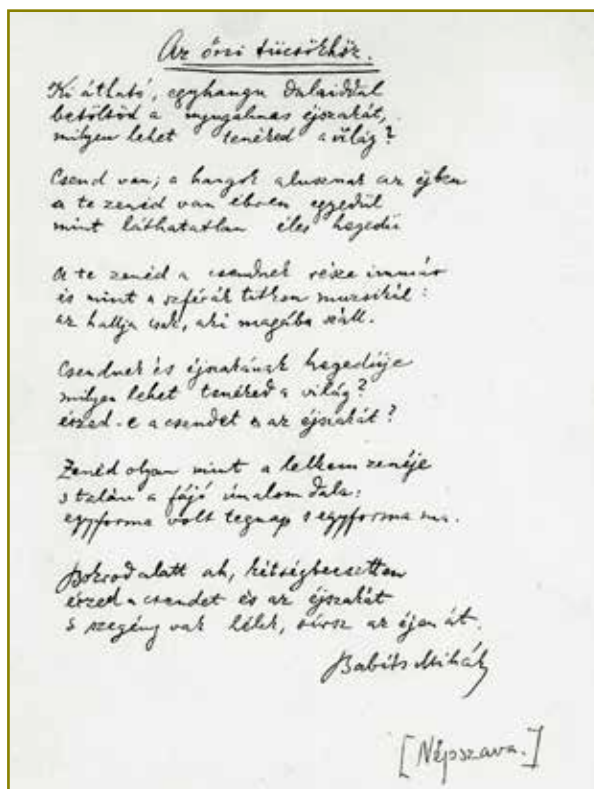 Az őszi tücsökhöz.
Ki átható, egyhangu dalaiddal
betöltöd a nyugalmas éjszakát,
milyen lehet tenéked a világ?
Csend van; a hangok alusznak az éjben
a te zenéd van ébren egyedül
mint láthatatlan éles hegedü
A te zenéd a csendnek része immár
és mint a szférák titkon muzsikál:
az hallja csak, aki magába száll.
Csendnek és éjszakának hegedüje
milyen lehet tenéked a világ?
érzed-e a csendet s az éjszakát?
Zenéd olyan mint a lelkem zenéje
s talán a fájó unalom dala:
egyforma volt tegnap s egyforma ma.
Bokrod alatt ah, kétségbeesetten
érzed a csendet és az éjszakát
s szegény vak lélek, sirsz az éjen át.
Babits Mihály
[Népszava.]